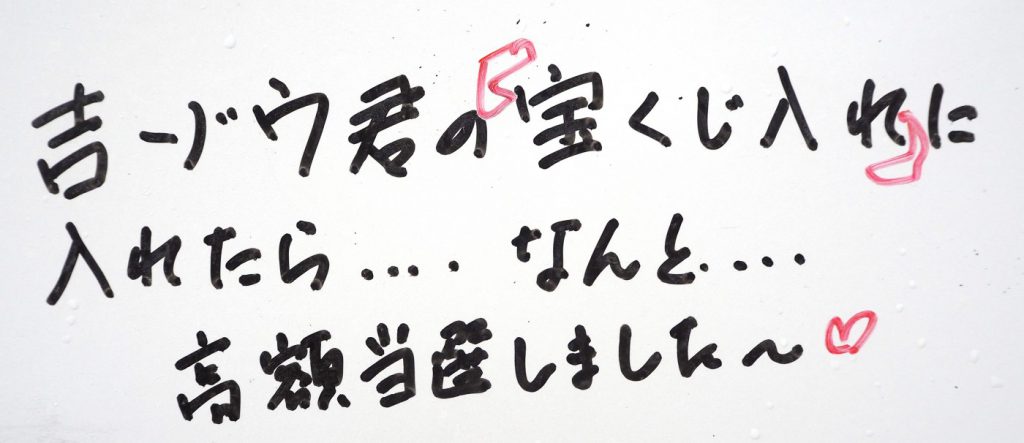 吉ードウ君の『宝くじ入れ』に
入れたら.... なんと....
高額当選しました～♡